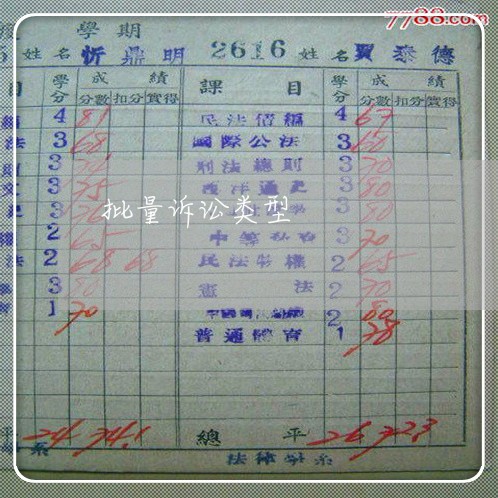 7788.com
學期
姓名 忻鼎明 2616 姓名 賈泰德
目 學分 成績 課目 學分 成績
分數 扣分 實得 分數 扣分 實得
4 81 民法債編 4 67
法 3 68 國際公法 3 60
3 刑法總則 3 70
3 75 西洋通史 3 80
3 3 80
2 65 3 70
法 2 68 68 民法物權 2 65
3 80 憲法 2 70
1 70 2 80
普通體育 1 78
批量诉讼类型
平 24 74.1 總平 26 72.3
系 法律學系